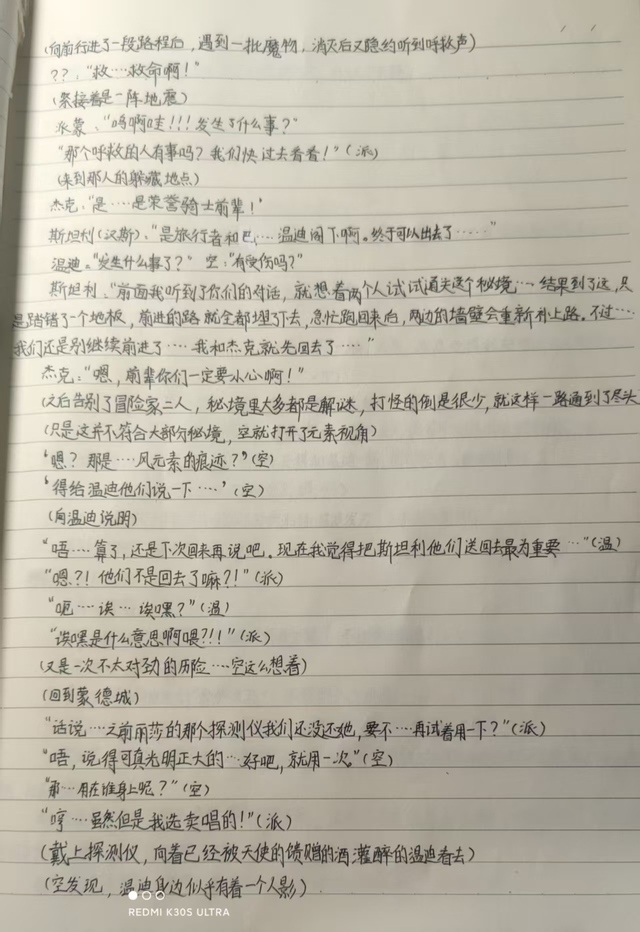 (向前行进了一段路程后，遇到一批魔物，消灭后又隐约听到呼救声)
??："救……救命啊！"
(紧接着是一阵地震)
派蒙："呜啊哇!!!发生了什么事？"
"那个呼救的人有事吗？我们快过去看看！"(派)
(来到那人的躲藏地点)
杰克："是……是荣誉骑士前辈！"
斯坦利(汉斯)："是旅行者和巴……温迪阁下啊。终于可以出去了……"
温迪："发生什么事了？" 空："有受伤吗？"
斯坦利："前面我听到了你们的对话，就想着两个人试试通关这个秘境……结果到了这，只
是踏错了一个地板，前进的路就全都埋了下去，急忙跑回来后，两边的墙壁会重新补上路。不过……
我们还是别继续前进了……我和杰克就先回去了……"
杰克："嗯，前辈你们一定要小心啊！"
(之后告别了冒险家二人，秘境里大多都是解谜，打怪的倒是很少，就这样一路通到了尽头
(只是这并不符合大部分秘境，空就打开了元素视角)
"嗯？那是……风元素的痕迹？"(空)
"得给温迪他们说一下……"(空)
(向温迪说明)
"唔……算了，还是下次回来再说吧。现在我觉得把斯坦利他们送回去最为重要…"(温)
"嗯?!他们不是回去了嘛?!"(派)
"呃……诶…诶嘿？"(温)
"诶嘿是什么意思啊喂?!!"(派)
(又是一次不太对劲的历险……空这么想着)
(回到蒙德城)
"话说……之前丽莎的那个探测仪我们还没还她，要不……再试着用一下？"(派)
"唔，说得可真光明正大的…好吧，就用一次"(空)
"那…用在谁身上呢？"(空)
"哼……虽然但是我选卖唱的！"(派)
(戴上探测仪，向着已经被天使的馈赠的酒灌醉的温迪看去)
(空发现，温迪身边似乎有着一个人影)
REDMI K30S ULTRA